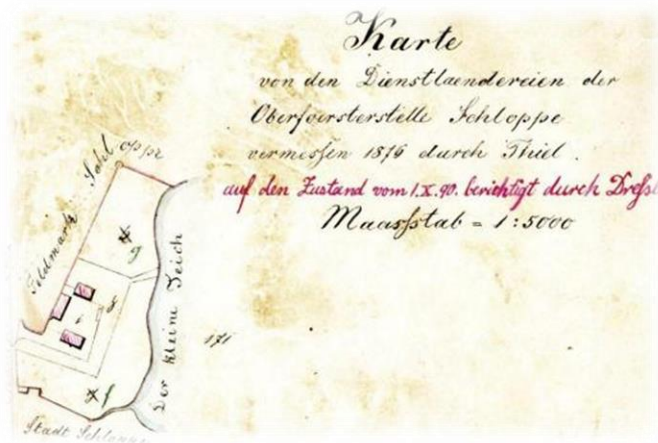 Karte
von den Dienstlaendereien der
Oberfoersterstelle Schloppe
vermessen 1876 durch Thiel.
auf den Zustand vom 1.X.90. berichtigt durch
Maasstab = 1:5000
Feldmark Schloppe
Der kleine Teich
g
f
Stadt